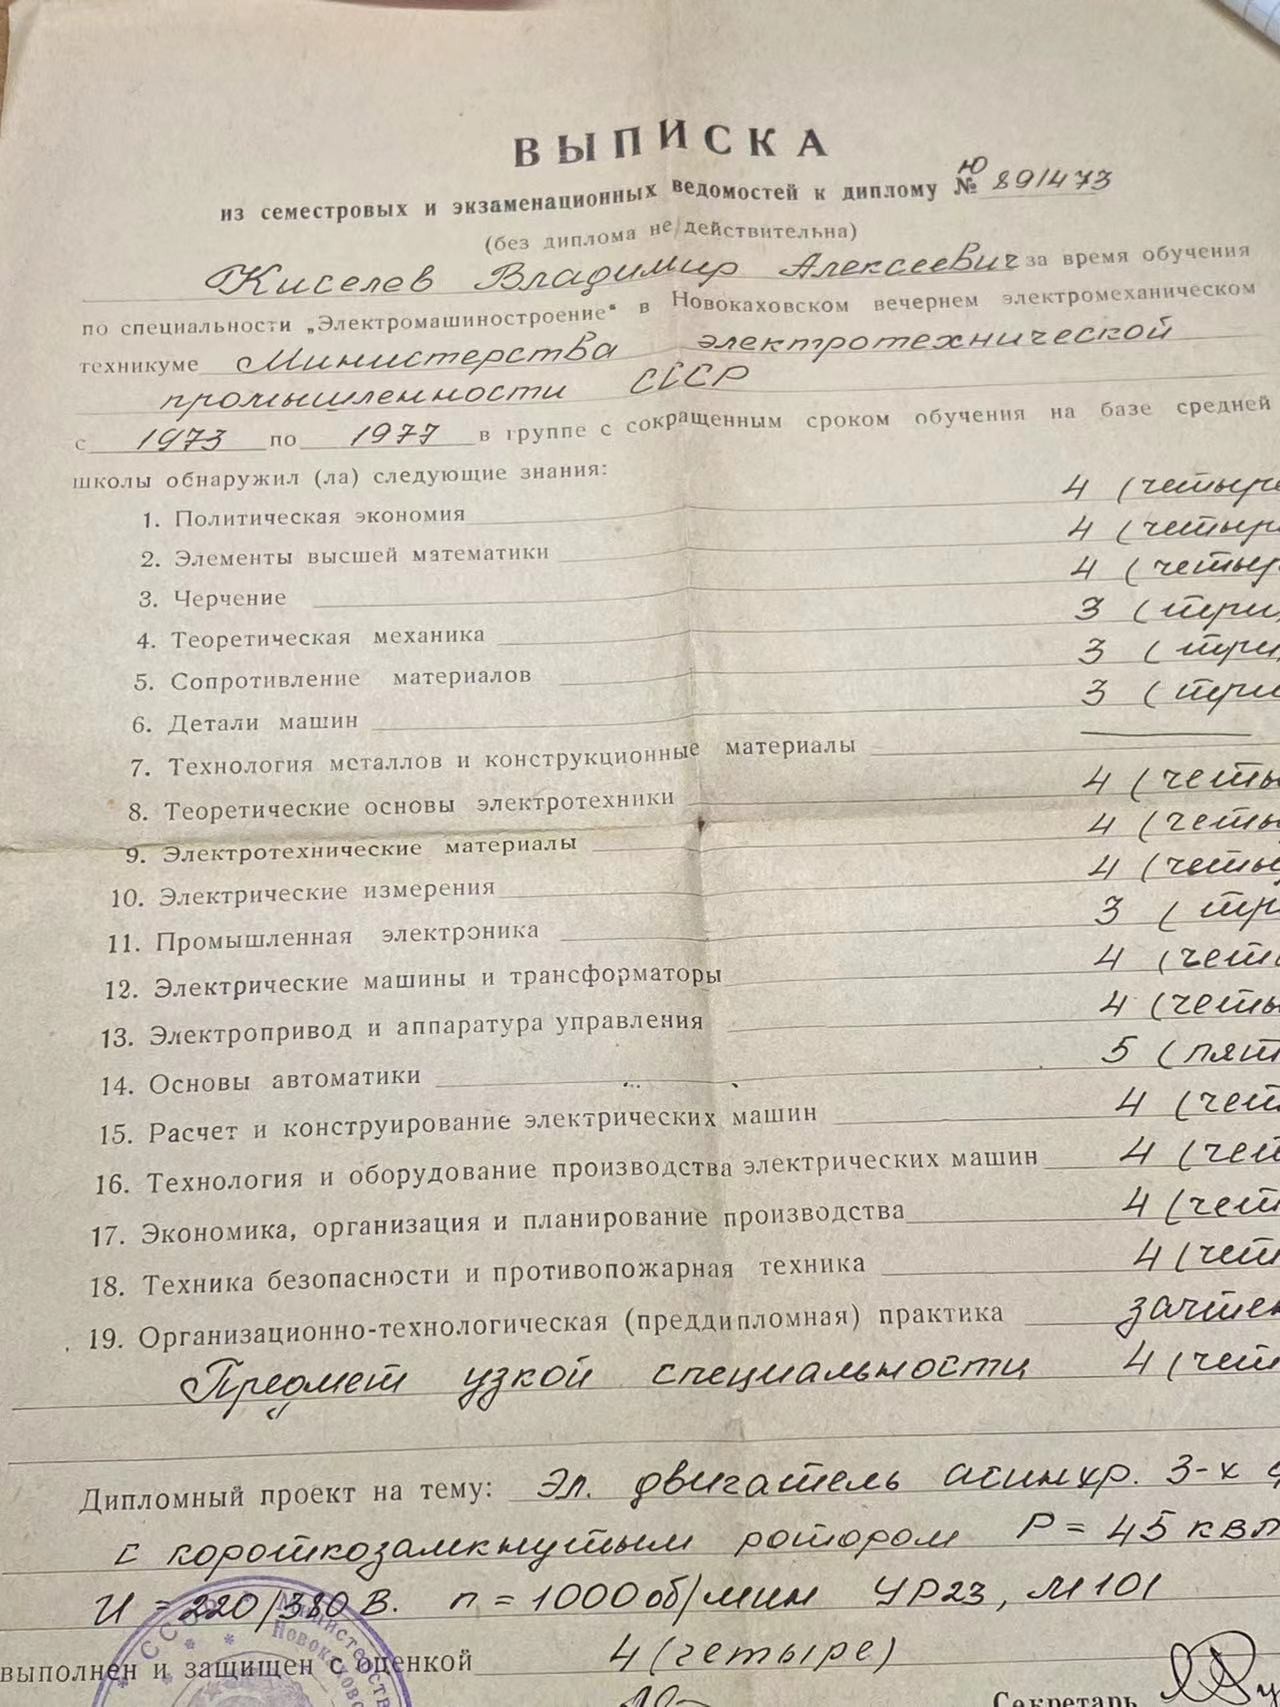 ВЫПИСКА
из семестровых и экзаменационных ведомостей к диплому № Ю 891473
(без диплома не действительна)
Киселев Владимир Алексеевич за время обучения
по специальности „Электромашиностроение“ в Новокаховском вечернем электромеханическом
техникуме Министерства электротехнической
промышленности СССР
с 1973 по 1977 в группе с сокращенным сроком обучения на базе средней
школы обнаружил (ла) следующие знания:
1. Политическая экономия 4 (четыре
2. Элементы высшей математики 4 (четыр
3. Черчение 4 (четыр
4. Теоретическая механика 3 (три
5. Сопротивление материалов 3 (три
6. Детали машин 3 (три
7. Технология металлов и конструкционные материалы
8. Теоретические основы электротехники 4 (четы
9. Электротехнические материалы 4 (четы
10. Электрические измерения 4 (четы
11. Промышленная электроника 3 (тр
12. Электрические машины и трансформаторы 4 (чет
13. Электропривод и аппаратура управления 4 (четы
14. Основы автоматики 5 (пят
15. Расчет и конструирование электрических машин 4 (чет
16. Технология и оборудование производства электрических машин 4 (чет
17. Экономика, организация и планирование производства 4 (чет
18. Техника безопасности и противопожарная техника 4 (чет
19. Организационно-технологическая (преддипломная) практика зачтен
Предмет узкой специальности 4 (чет
Дипломный проект на тему: Эл. двигатель асинхр. 3-х
с короткозамкнутым ротором P = 45 квт
U = 220/380 В. n = 1000 об/мин УР23, М101
выполнен и защищен с оценкой 4 (четыре)
Секретарь
СССР Министерство
Новокаховс